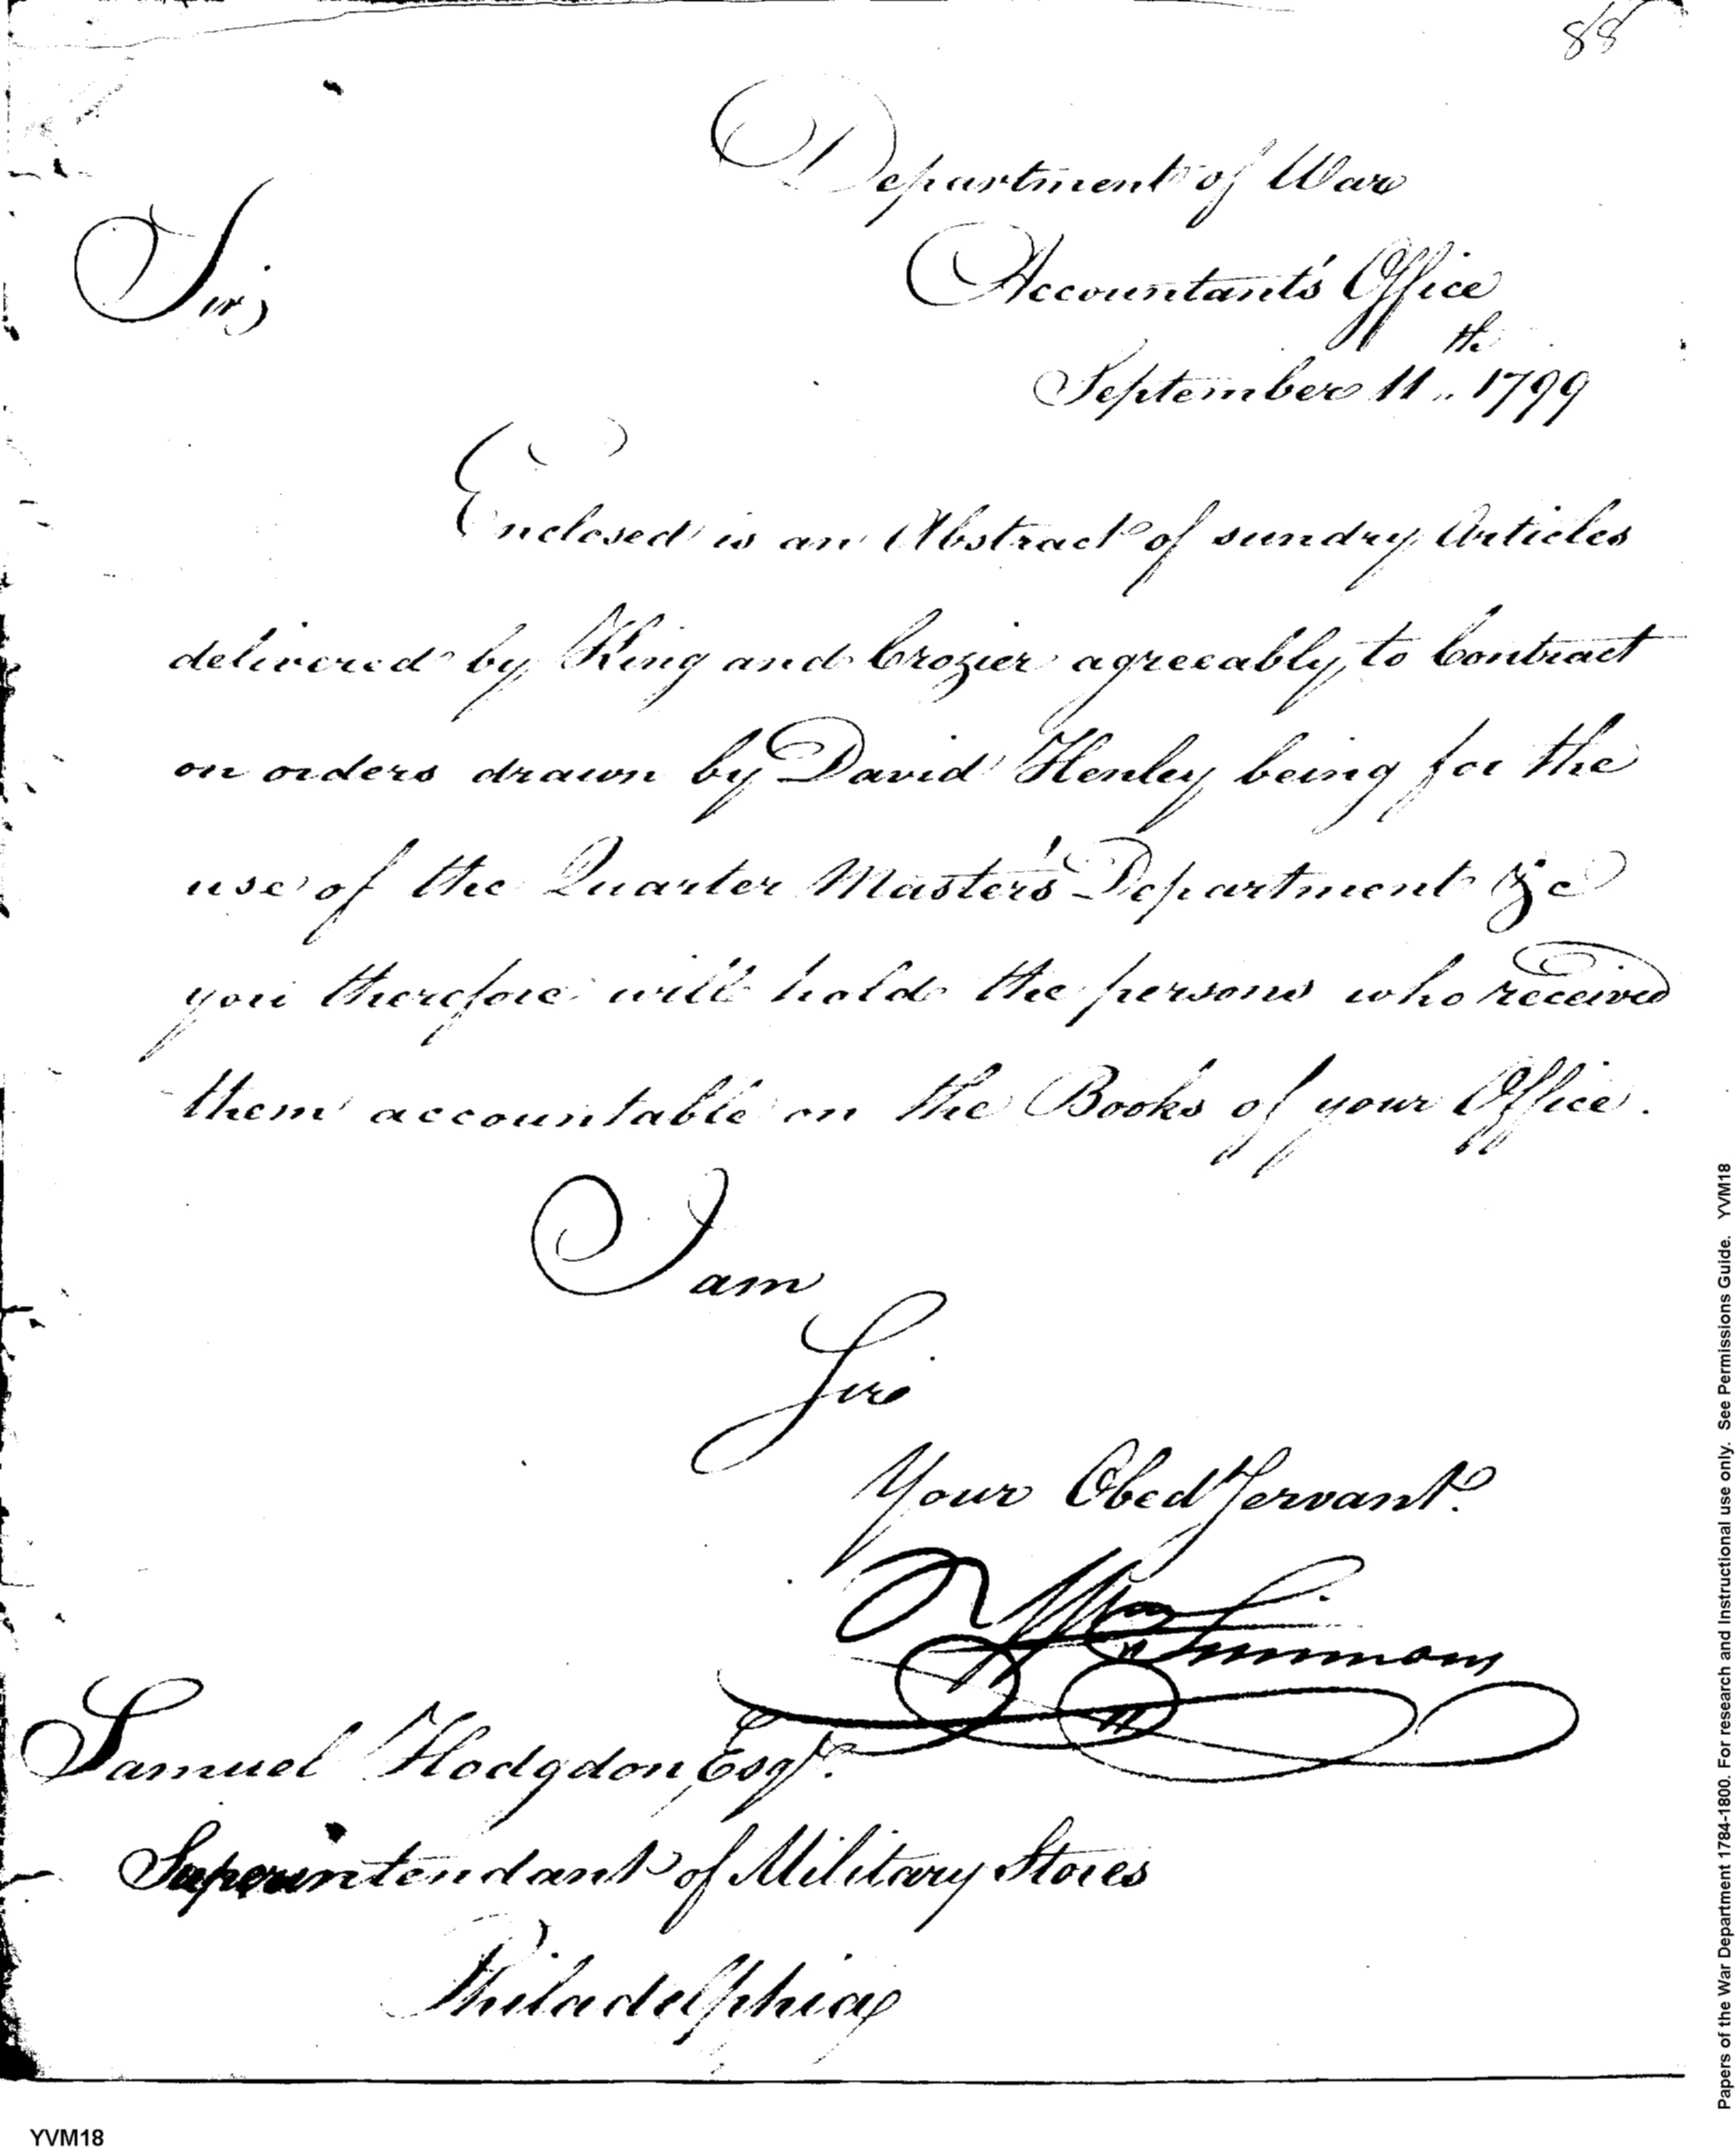 88
Department of War
Sir,
Accountant's Office
September 11th 1799
Enclosed is an Abstract of sundry Articles
delivered by King and Crozier agreeably to Contract
on orders drawn by David Henley being for the
use of the Quarter Master's Department &c
you therefore will hold the persons who received
them accountable on the Books of your Office.
I am
Sir
Your Obed Servant.
Wm Simmons
Samuel Hodgdon Esqr.
Superintendant of Military Stores
Philadelphia
YVM18
Papers of the War Department 1784-1800. For research and Instructional use only. See Permissions Guide. YVM18